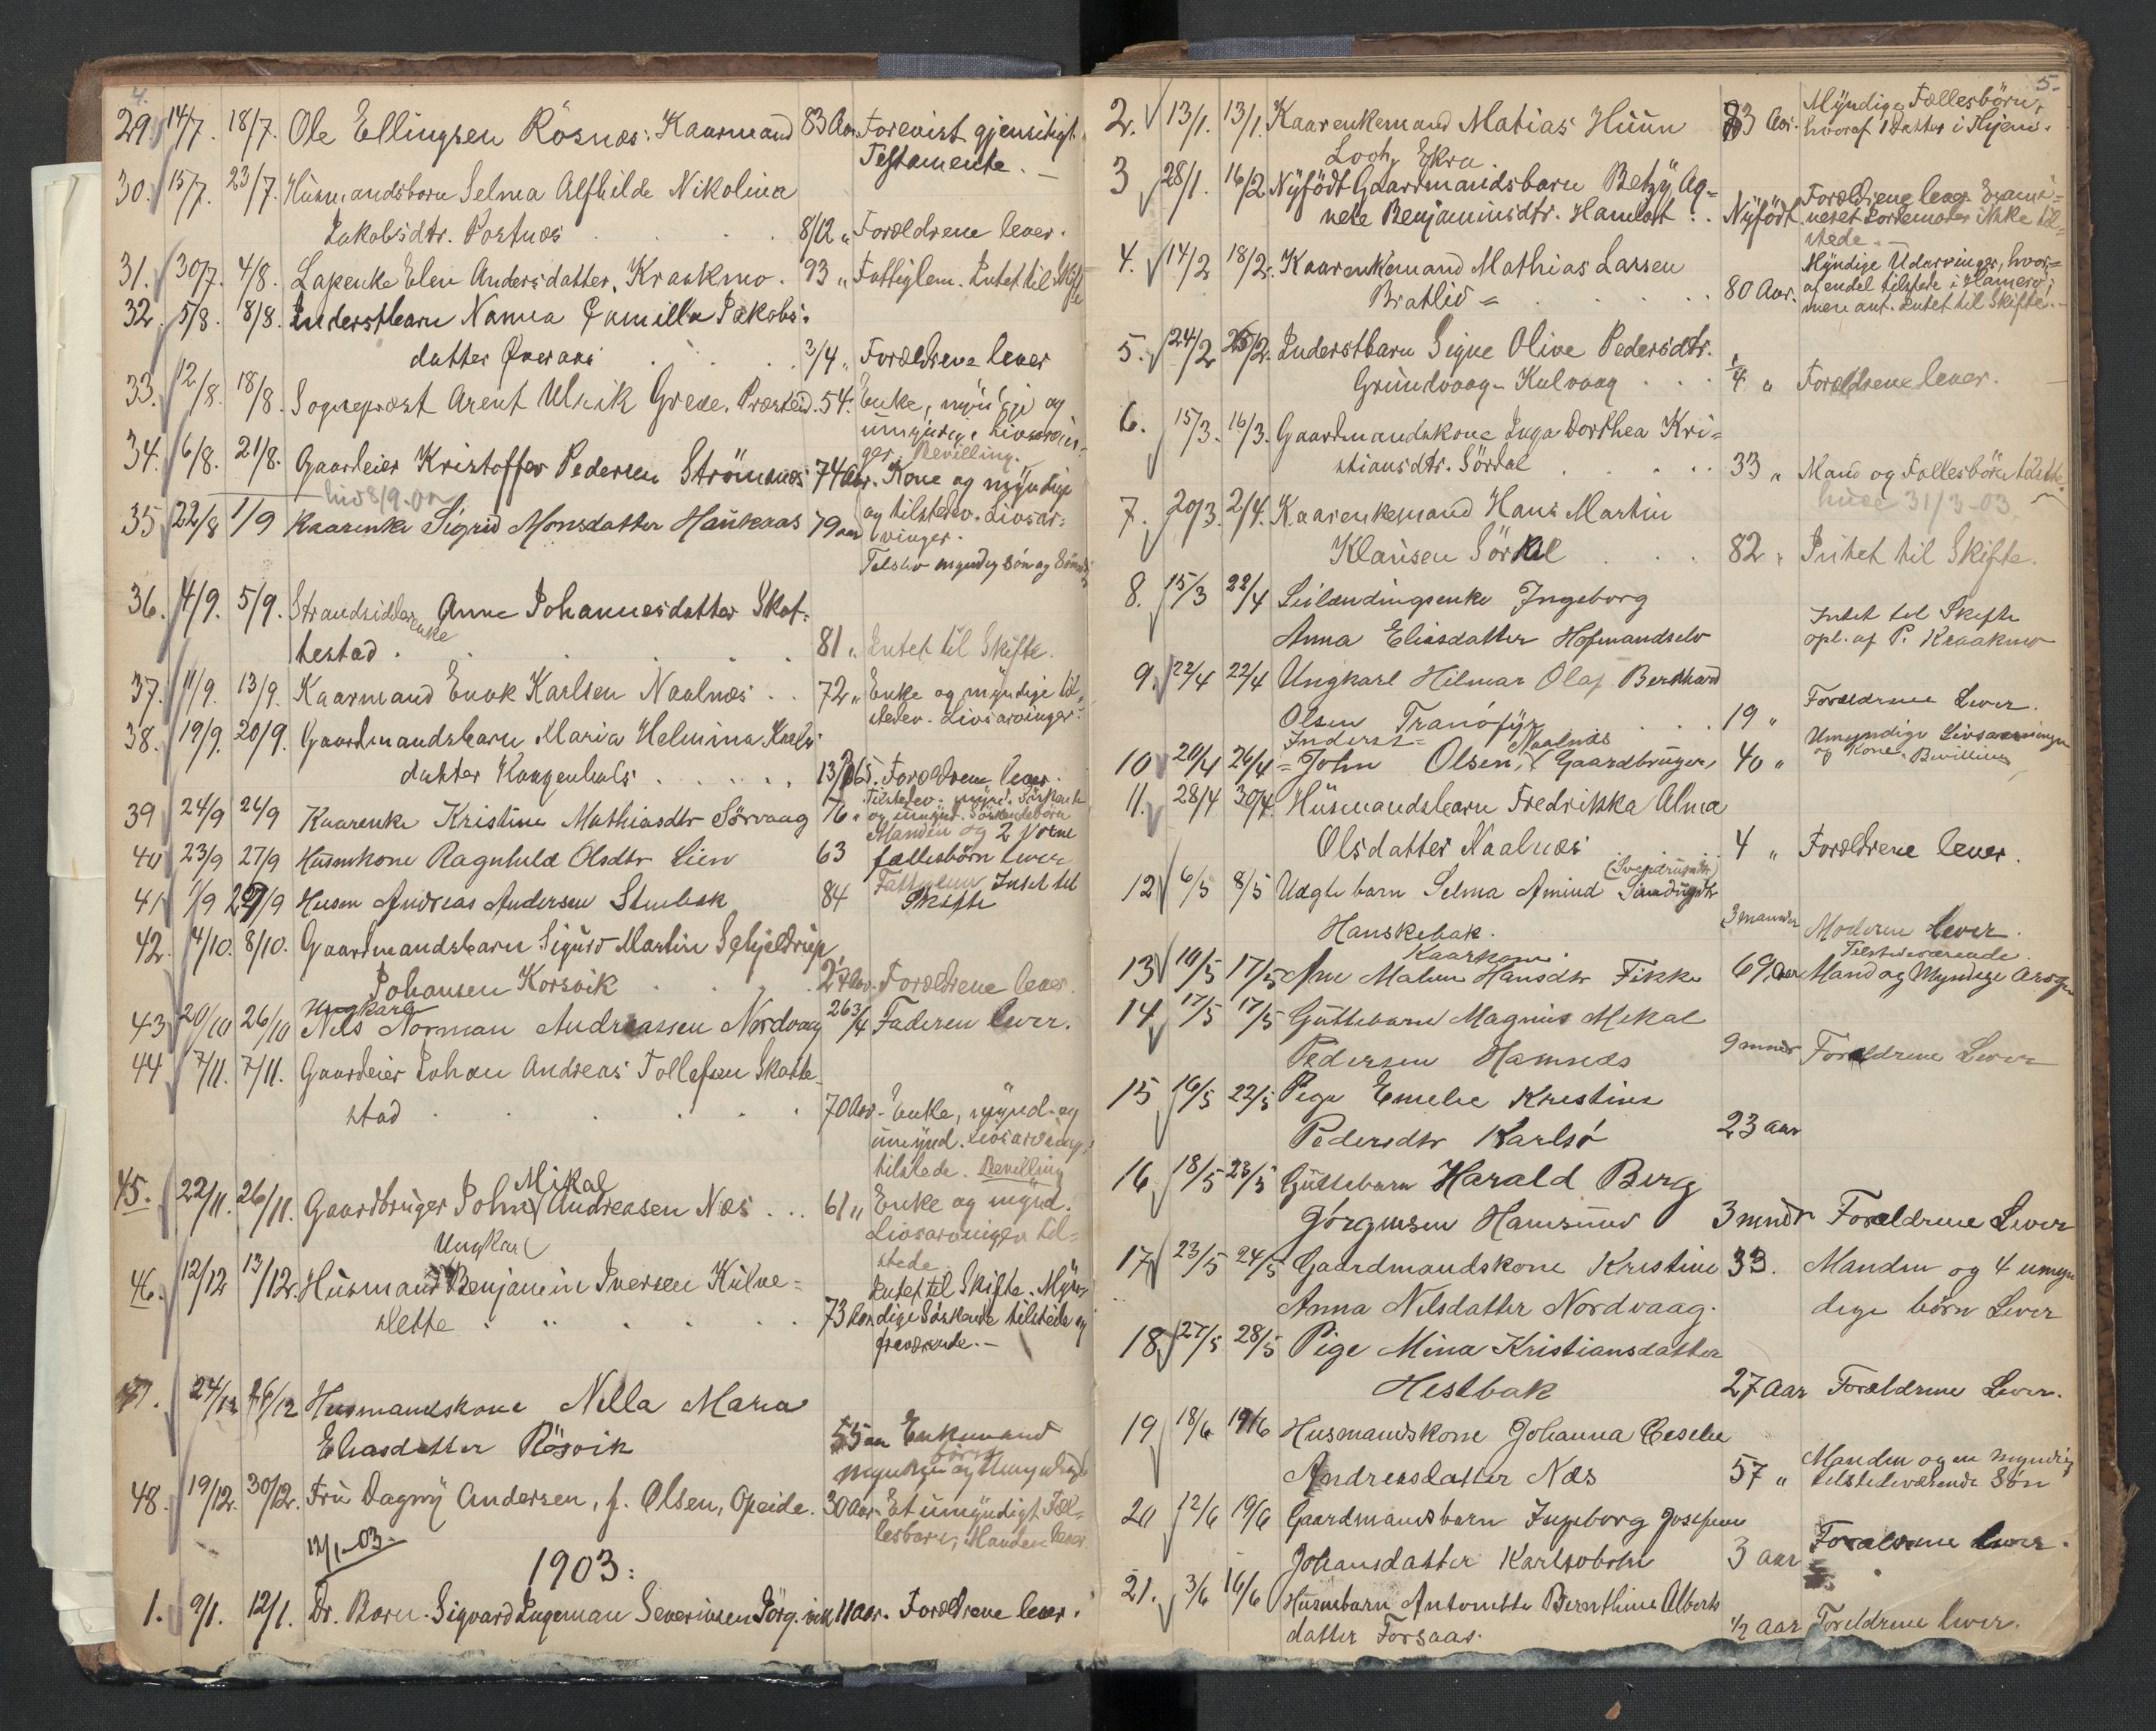 4.
29. 14/7. 18/7. Ole Ellingsen Rösnæs. Kaarmand 83 Aar. Forevist gjensidigt
Testamente. —
30. 15/7. 23/7. Husmandsbarn Selma Alfhilde Nikolina
Jakobsdtr. Portnæs . . . . 8/12 „ Forældrene lever.
31. 30/7. 4/8. Lapenke Elen Andersdatter, Kraakmo. 93 „ Fattiglem. Intet til Skifte
32. 5/8. 8/8. Inderstbarn Nanna Camilla Jakobs-
datter . . . . 3/4 „ Forældrene lever
33. 12/8. 18/8. Sogneprest Arent Ulrik Greve. Presteid. 54. Enke, myndige og
umyndige Livsarvin-
ger. Bevilling.
34. 16/8. 21/8. Gaardeier Kristoffer Pedersen Strömsnes 74 Aar. Kone og myndige
og tilstedev. Livsar-
vinger.
35 22/8 1/9 Kaarenke Sigrid Monsdatter Haukaas 79 aar
Tilstev myndig Sön og
36. 4/9. 5/9. Strandsidder enke Anne Johannesdatter Skot-
testad . . . . 81 „ Intet til Skifte.
37. 11/9. 13/9. Kaarmand Enok Karlsen Naalnæs . . 72 „ Enke og myndige til-
stedev. Livsarvinger.
38. 19/9. 20/9. Gaardmandsbarn Maria Helmina Karls-
datter Kaagenhals . . . . 13/365. Forældrene lever.
39 24/9 26/9 Kaarenke Kristine Mathiasdtr Sörvaag 76 „ Tilstedev. mynd. Söskende
og umynd. Söskendebörn
40 23/9 27/9 Husmkone Ragnhild Olsdtr Lien 63 Manden og 2 Vorne
fællesbörn lever
41 1/9 29/9 Husm Andreas Andersen Stubak 84 Fattiglem Intet til
Skifte
42. 4/10. 8/10. Gaardmandsbarn Sigurd Martin Schjeldrup
Johansen Korsvik . . . . Forældrene lever.
43 20/10 26/10 Ungkarl Nils Norman Andreassen Nordvaag 26 3/4 Faderen lever.
44 7/11. 7/11. Gaardeier Johan Andreas Tollefsen Skotte-
stad . . . . 70 Aar. Enke, mynd. og
umynd. Livsarvinger
tilstede. Bevilling
45. 22/11. 26/11. Gaardbruger John Mikal Andreasen Næs . . . 61 „ Enke og mynd.
Livsarvinger til-
stede
46. 12/12 13/12. Husmand Ungkarl Benjamin Iversen Külve-
slette . . . . 73 Aar Intet til Skifte. Myn-
dige Söskende tilstede og
fraværende. —
47. 24/12 26/12 Husmandskone Nella Maria
Eliasdatter Rösvik 55 aar Enkemand
myndige og Umyndige börn
48. 19/12. 30/12. Fru Dagny Andersen, f. Olsen, Opeide. 30 Aar. Et umyndigt Fæl-
lesbarn, Manden lever.
12/1-03.
1903:
1. 9/1. 12/1. Dr. Barn. Sigvard Ingeman Severinsen Jörg.vik 11 Aar. Forældrene lever.
5.
2. 13/1. 13/1. Kaarenkemand Matias Huun 83 Aar. Myndige Fællesbörn,
hvoraf 1 Datter i Hjem.
3 28/1. 16/2 Nyfödt Gaardmandsbarn Betzy Ag-
nete Benjaminsdtr. Hamlot . . Nyfödt. Forældrene lever. Exami-
neret Jordemoder ikke til-
stede. —
4. 14/2 18/2. Kaarenkemand Mathias Larsen
Bratlid . . . . 80 Aar. Myndige Udarvinger, hvor-
af endel tilstede i Hamerö,
men ant. Intet til Skifte. —
5. 24/2 26/2. Inderstbarn Signe Olive Pedersdtr.
Grundvaag - Kulvaag . . . 1/4 „ Forældrene lever.
6. 15/3. 16/3. Gaardmandskone Inga Dorthea Kri-
stiansdtr. Sördal . . . . 33 „ Mand og Fællesbörn tilstede.
31/3-03
7. 20/3. 2/4. Kaarenkemand Hans Martin
Klausen . . 82 „ Intet til Skifte.
8. 15/3 22/4 Leilændingsenke Ingeborg
Anna Eliasdatter Hofmandselv Intet til Skifte
opl. af P. Kraakmo
9. 22/4 22/4 Ungkarl Hilmar Olaf Bernhard
Olsen Tranöfyr . . . 19 „ Forældrene Lever.
10 20/4 26/4 Inderst = John Olsen, Naalnæs Gaardbruger, 40 „ Umyndige Livsarvinger
og Kone. Bevilling
11. 28/4 30/4. Husmandsbarn Fredrikka Alma
Olsdatter Naalnæs . . 4 „ Forældrene lever.
12 6/5 8/5 Uægte barn Selma Amind
Hanskebak. 3 maaneder Moderen Lever.
13 10/5 17/5 Kaarkone Ane Malene Hansdtr Fikke 69 Aar Tilstedeværende
Mand og Myndige Arvger
14 17/5 17/5 Guttebarn Magnus Mekal
Pedersen Hamnæs 9 mndr Forældrene Lever
15 16/5 22/5 Pige Emelie Kristine
Pedersdtr Karlsö 23 aar
16. 18/5 23/5 Guttebarn Harald Berg
Jörgensen Hamsund 3 mndr Forældrene Lever
17 23/5 24/5 Gaardmandskone Kristine 33. Manden og 4 umyn
Anna Nilsdatter Nordvaag. dige börn Lever
18. 27/5 28/5 Pige Mina Kristiansdatter
Hestbak 27 Aar Forældrene Lever.
19 18/6 19/6 Husmandskone Johanna Ceselie
Andreasdatter Næs 57 „ Manden og en myndig
tilstedeværende Sön
20 12/6 19/6 Gaardmandsbarn Ingeborg Josefine
Johansdatter Karlsöholm 3 aar Forældrene lever.
21. 3/6 16/6 Husmbarn Antonette Bernthine Alberts
datter Forsaas. 1/2 Aar Foreldrene lever.